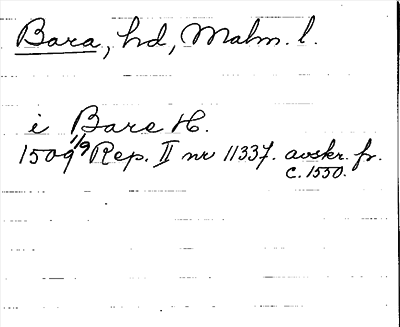 Bara, hd, Malm. l.
i Bare H.
1509 1/9 Rep. II nr 11337. avskr. fr.
c. 1550.